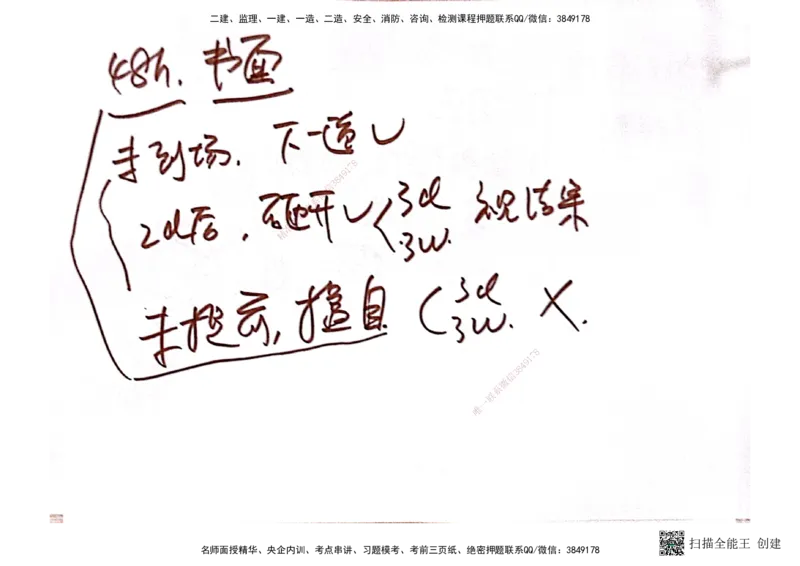 二建、监理、一建、一造、二造、安全、消防、咨询、检测课程押题联系QQ/微信：3849178
48h. 书面
未到场. 下一道✓
2d后, 砸开✓ 3d 视结果
3w.
未提前, 擅自 3d ✗.
3w.
唯一联系微信3849178
名师面授精华、央企内训、考点串讲、习题模考、考前三页纸、绝密押题联系QQ/微信：3849178
扫描全能王 创建